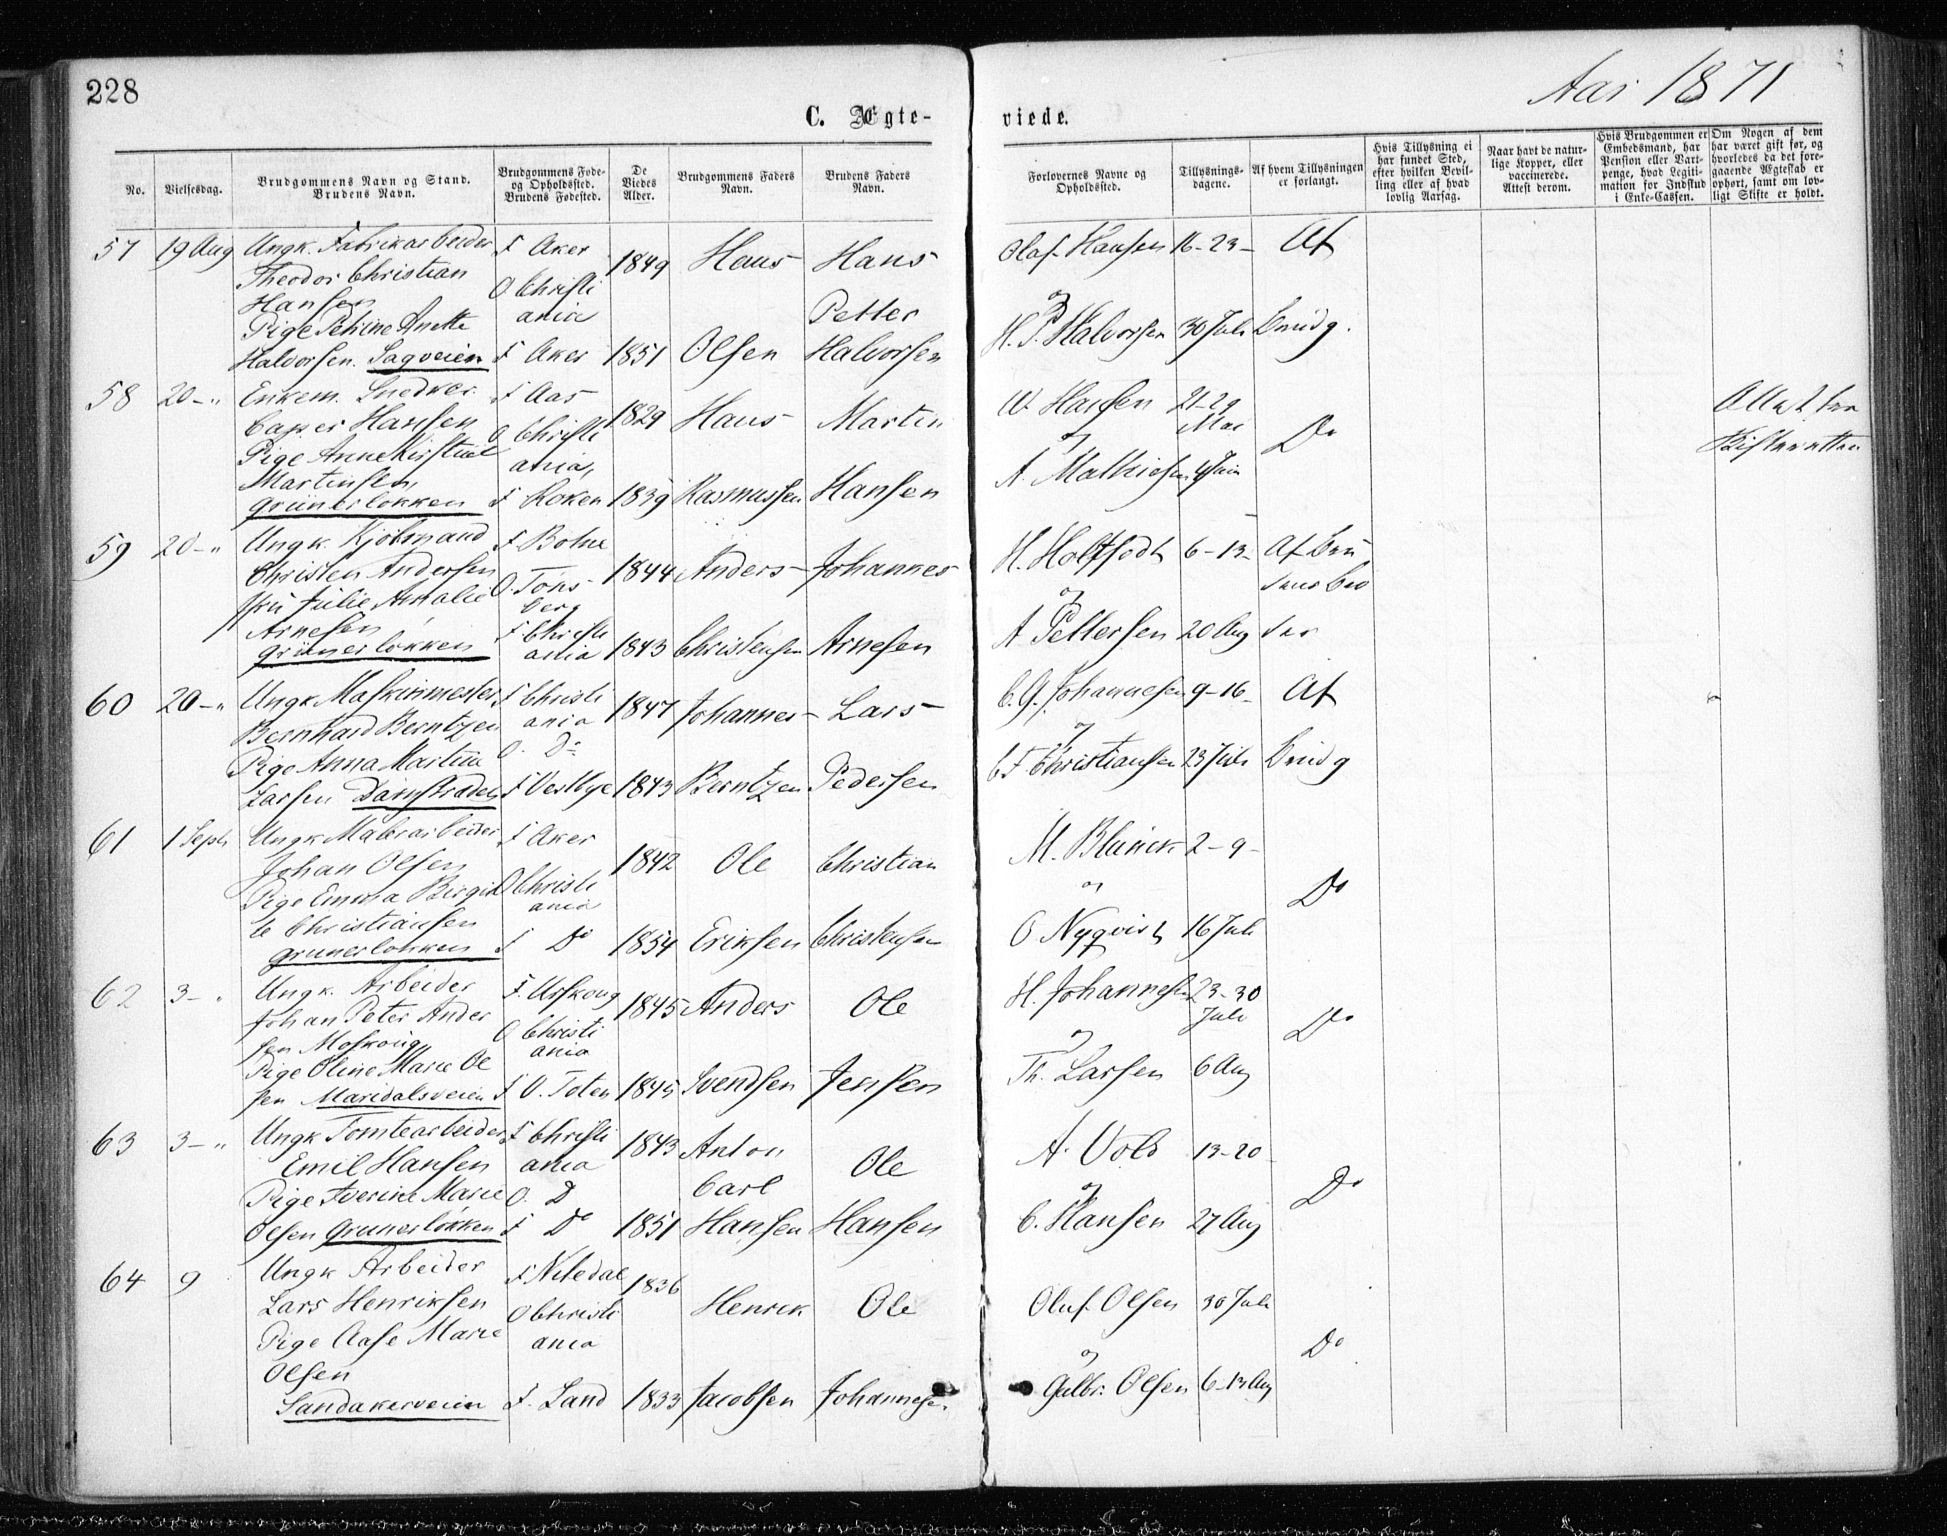 228
Aar 1871
C. Ægte-
viede.
No.
Vielsesdag.
Brudgommens Navn og Stand.
Brudens Navn.
Brudgommens Føde-
og Opholdssted.
Brudens Fødested.
De
Viedes
Alder.
Brudgommens Faders
Navn.
Brudens Faders
Navn.
Forlovernes Navne og
Opholdssted.
Tillysnings-
dagene.
Af hvem Tillysningen
er forlangt.
Hvis Tillysning ei
har fundet Sted,
efter hvilken Bevil-
ling eller af hvad
lovlig Aarsag.
Naar havt de natur-
lige Kopper, eller
vaccinerede.
Attest derom.
Hvis Brudgommen er
Embedsmand, har
Pension eller Vart-
penge, hvad Legiti-
mation for Indskud
i Enke-Cassen.
Om Nogen af dem
har været gift før, og
hvorledes da det fore-
gaaende Ægteskab er
ophørt, samt om lov-
ligt Skifte er holdt.
57 19 Aug Ungk. Fabrikarbeider F Aker 1849 Hans Hans Olaf Hansen 16-23- Af
Theodor Christian O Christi
Hansen ania Petter og
Pige Petrine Anette H. P. Halvorsen 30 Juli Brudg.
Halvorsen. Sagveien F Aker 1851 Olsen Halvorsen
58 20-" Enkem. Snedker F Aas 1829 Hans Martin W. Hansen 21-29 Do
Casper Hansen O Christi Mai
Pige Anne Kirstine ania, og
Martinsen A. Mathiesen 4 Juni
Grünerløkken F Røken 1839 Rasmussen Hansen
59 20-" Ungk. Kjøbmand F Botne 1844 Anders Johannes H. Holtfodt 6-13- Af Bru
Christen Andersen O. Tøns-
Frk Julie Amalie berg og
Arnesen F Christi A Pettersen 20 Aug
Grünerløkken ania 1843 Christensen Arnesen
60 20-" Ungk Maskinmester F Christi 1847 Johannes Lars C. G. Johannesen 9-16- Af
Bernhard Berntzen ania og
Pige Anna Martine O. Do C F Christiansen 23 Juli Brudg
Larsen F Vestbye 1843 Berntzen Pedersen
61 1 Sept Ungk Malerarbeider F Aker 1842 Ole Christian M. Blunck 2-9- Do
Johan Olsen O Christi
Pige Emma Birgit ania og
te Christiansen
Grunerløkken F Do 1854 Eriksen Christensen O Nyqvist 16 Juli
62 3-" Ungk. Arbeider F. Urskoug 1845 Anders Ole H. Johannesen 23-30 Do
Johan Peter Ander O Christi Juli
sen Moskoug ania og
Pige Oline Marie Ol
sen Maridalsveien F O. Toten 1845 Svendsen Jensen Th. Larsen 6 Aug
63 3-" Ungk Tomtearbeider F Christi 1843 Anton Ole A. Vold 13-20 Do
Emil Hansen ania Carl og
Pige Iverine Marie O. D
Olsen Grunerløkken F Do 1851 Hansen Hansen C. Hansen 27 Aug
64 9 Ungk Arbeider F Nitedal 1836 Henrik Ole Oluf Olsen 30 Juli Do
Lars Henriksen O Christi
Pige Aase Marie ania og
Olsen
Sandakerveien F. Land 1833 Jacobsen Johannesen Gulbr. Olsen 6-13 Aug